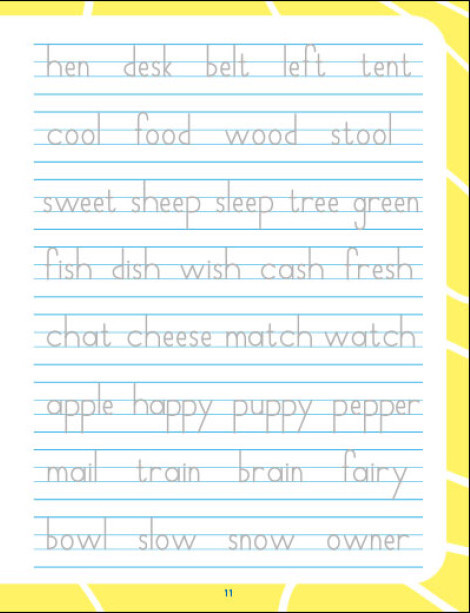 hen desk belt left tent
cool food wood stool
sweet sheep sleep tree green
fish dish wish cash fresh
chat cheese match watch
apple happy puppy pepper
mail train brain fairy
bowl slow snow owner
11